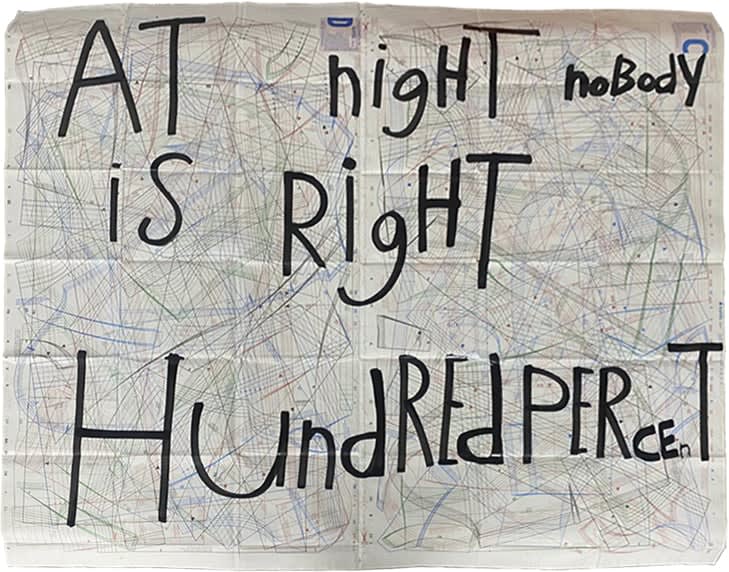 AT nigHT noBodY
iS RigHT
HUndREdPERcEnT